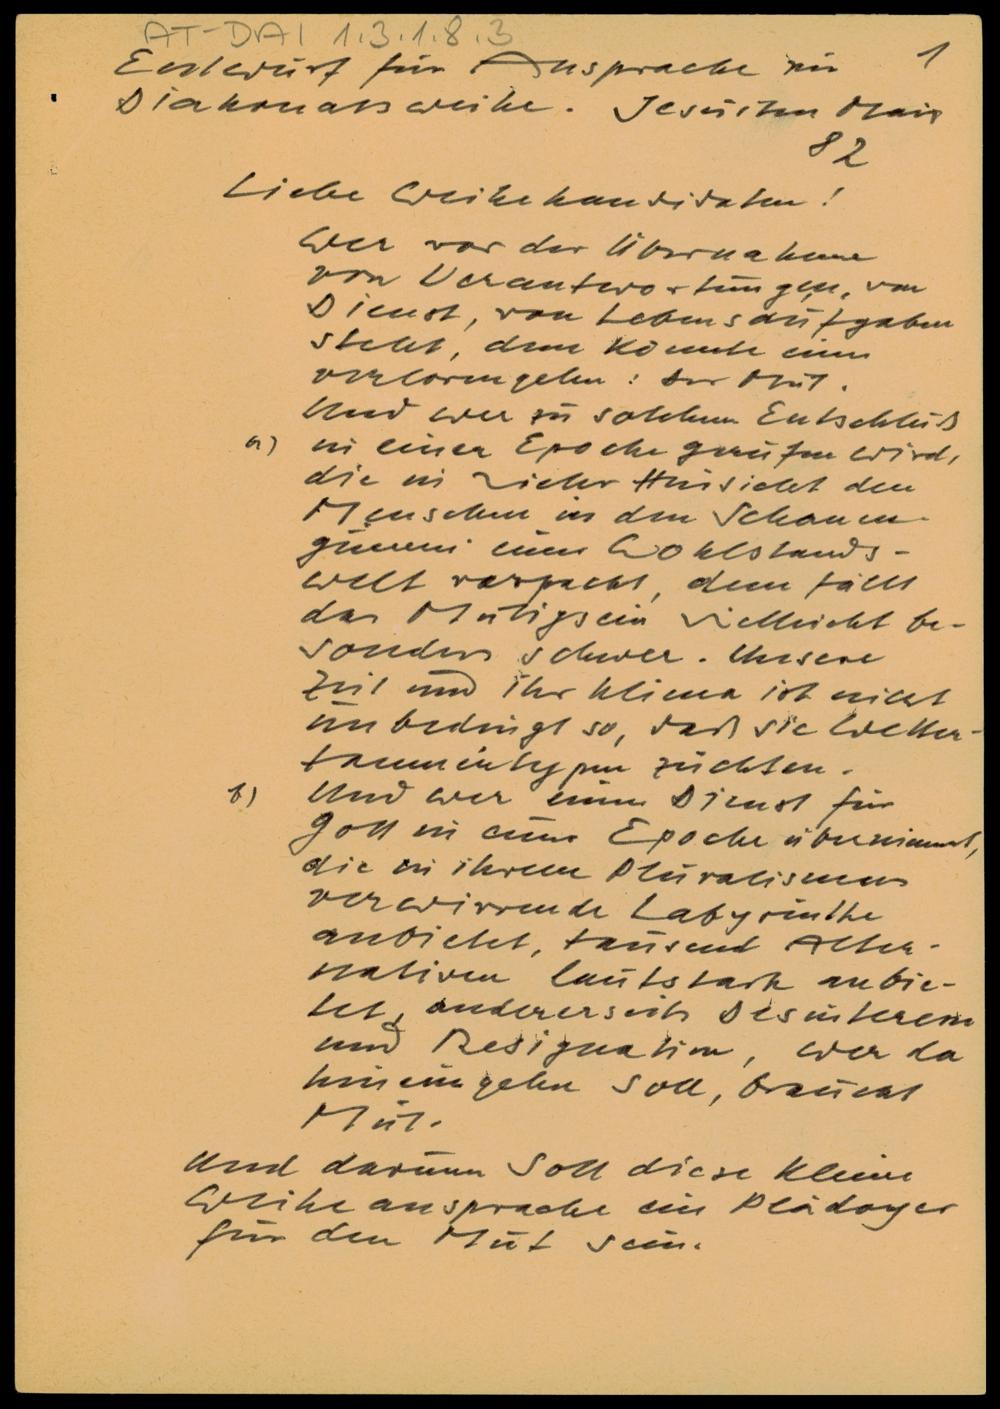 AT-DAI 1.3.1.8.3
1
Entwurf für Ansprache zur
Diakonatsweihe. Jesuiten März
82
Liebe Weihekandidaten!
Wer vor der Übernahme
von Verantwortungen, von
Dienst, von Lebensaufgaben
steht, dem könnte eines
verlorengehen: der Mut.
Und wer zu solchem Entschluß
a) in einer Epoche gerufen wird,
die in vieler Hinsicht den
Menschen in den Schaum-
gummi einer Wohlstands-
welt verpackt, dem fällt
das Mutigsein vielleicht be-
sonders schwer. Unsere
Zeit und ihr Klima ist nicht
unbedingt so, daß sie Wetter-
tannentypen züchten.
b) Und wer einen Dienst für
Gott in einer Epoche übernimmt,
die in ihrem Pluralismus
verwirrende Labyrinthe
anbietet, tausend Alter-
nativen lautstark anbie-
tet, andererseits Desinteresse
und Resignation, wer da
hineingehen soll, braucht
Mut.
Und darum soll diese kleine
Weiheansprache ein Plädoyer
für den Mut sein.